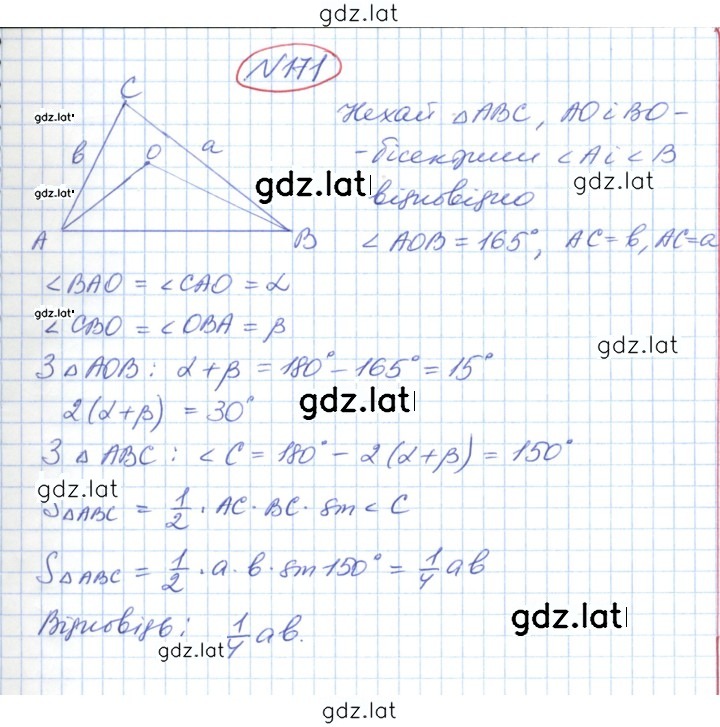 gdz.lat
N171
C
gdz.lat
в
O
a
gdz.lat
A
B
gdz.lat
Нехай △ABC, AO і BO -
- бісектриси ∠A і ∠B
gdz.lat
відповідно
∠AOB = 165°, AC = в, AC = a
∠BAO = ∠CAO = α
gdz.lat
∠CBO = ∠OBA = β
gdz.lat
З △AOB: α + β = 180° - 165° = 15°
2(α + β) = 30°
gdz.lat
З △ABC: ∠C = 180° - 2(α + β) = 150°
gdz.lat
S△ABC = 1/2 · AC · BC · sin ∠C
S△ABC = 1/2 · a · в · sin 150° = 1/4 aв
Відповідь: 1/4 aв.
gdz.lat
gdz.lat
gdz.lat